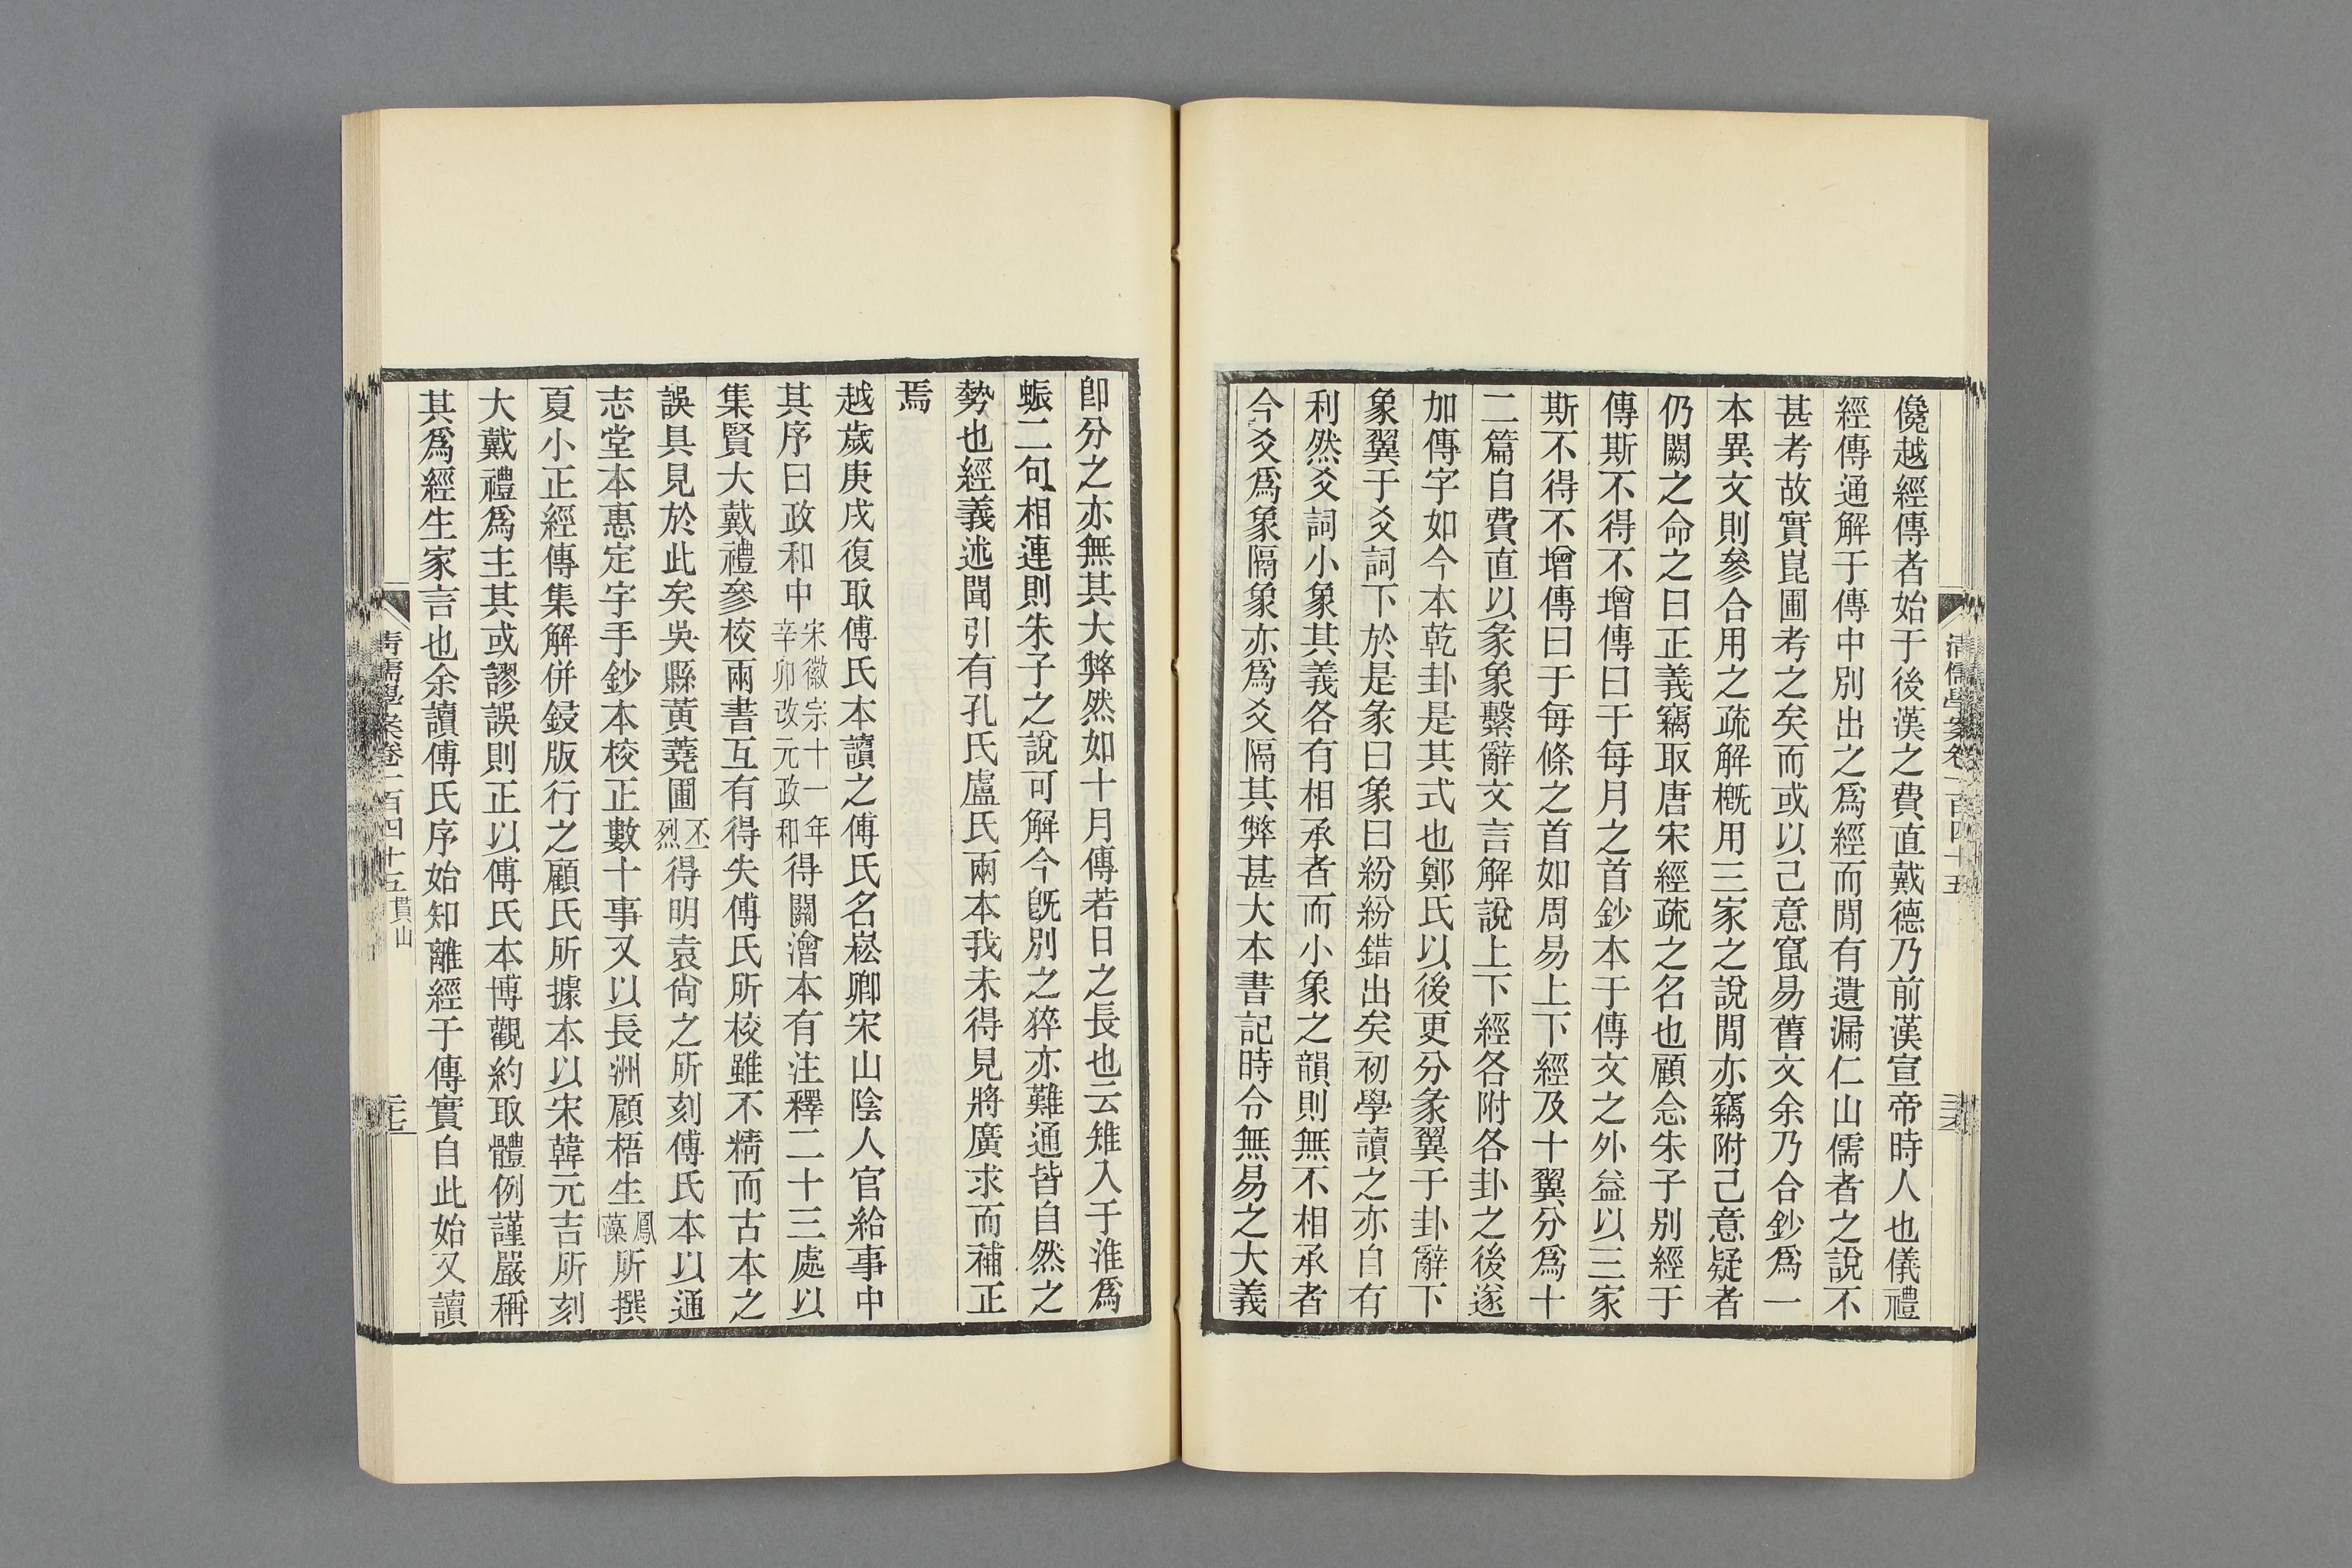 儳越經傳者始于後漢之費直戴德乃前漢宣帝時人也儀禮
經傳通解于傳中別出之爲經而閒有遺漏仁山儒者之說不
甚考故實崑圃考之矣而或以己意竄易舊文余乃合鈔爲一
本異文則參合用之疏解槪用三家之說閒亦竊附己意疑者
仍闕之命之曰正義竊取唐宋經疏之名也顧念朱子別經于
傳斯不得不增傳曰于每月之首鈔本于傳文之外益以三家
斯不得不增傳曰于每條之首如周易上下經及十翼分爲十
二篇自費直以彖象繫辭文言解說上下經各附各卦之後遂
加傳字如今本乾卦是其式也鄭氏以後更分彖翼于卦辭下
象翼于爻詞下於是彖曰象曰紛紛錯出矣初學讀之亦自有
利然爻詞小象其義各有相承者而小象之韻則無不相承者
今爻爲象隔象亦爲爻隔其弊甚大本書記時令無易之大義
清儒學案卷一百四十五
卽分之亦無其大弊然如十月傳若日之長也云雉入于淮爲
蜃二句相連則朱子之說可解今旣別之猝亦難通皆自然之
勢也經義述聞引有孔氏盧氏兩本我未得見將廣求而補正
焉
越歲庚戌復取傅氏本讀之傅氏名崧卿宋山陰人官給事中
其序曰政和中宋徽宗十一年辛卯改元政和得關澮本有注釋二十三處以
集賢大戴禮參校兩書互有得失傅氏所校雖不精而古本之
誤具見於此矣吳縣黃蕘圃丕烈得明袁尙之所刻傅氏本以通
志堂本惠定宇手鈔本校正數十事又以長洲顧梧生鳳藻所撰
夏小正經傳集解併鋟版行之顧氏所據本以宋韓元吉所刻
大戴禮爲主其或謬誤則正以傅氏本博觀約取體例謹嚴稱
其爲經生家言也余讀傅氏序始知離經于傳實自此始又讀
清儒學案卷一百四十五 貫山